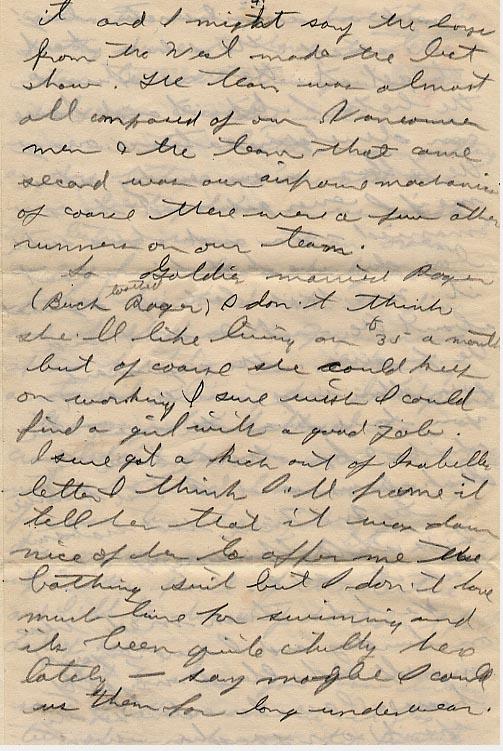 it and I might say the boys
from the West made the best
show. The team was almost
all composed of our Vancouver
men & the team that came
second was our airforce mechanics
of coarse there were a few other
runners on our team.
So Goldie married Roger
(Buck Roger) I don't think
she.ll like living on $35 a month
but of coarse she could keep
on working I sure wish I could
find a girl with a good job.
I sure got a kick out of Isabelle
letter I think I.ll frame it
tell her that it was darn
nice of her to offer me the
bathing suit but I don't have
much time for swimming and
its been quite chilly here
lately — say maybe I could
us them for long underwear.